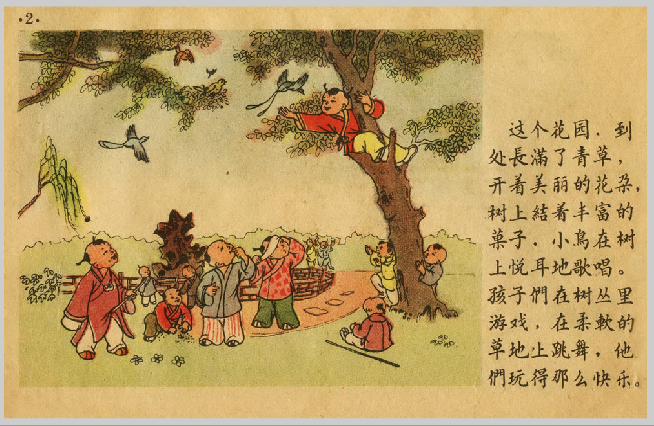 ·2·
这个花园．到
处長滿了青草，
开着美丽的花朶，
树上結着丰富的
菓子．小鳥在树
上悦耳地歌唱。
孩子們在树丛里
游戏，在柔軟的
草地上跳舞，他
們玩得那么快乐。